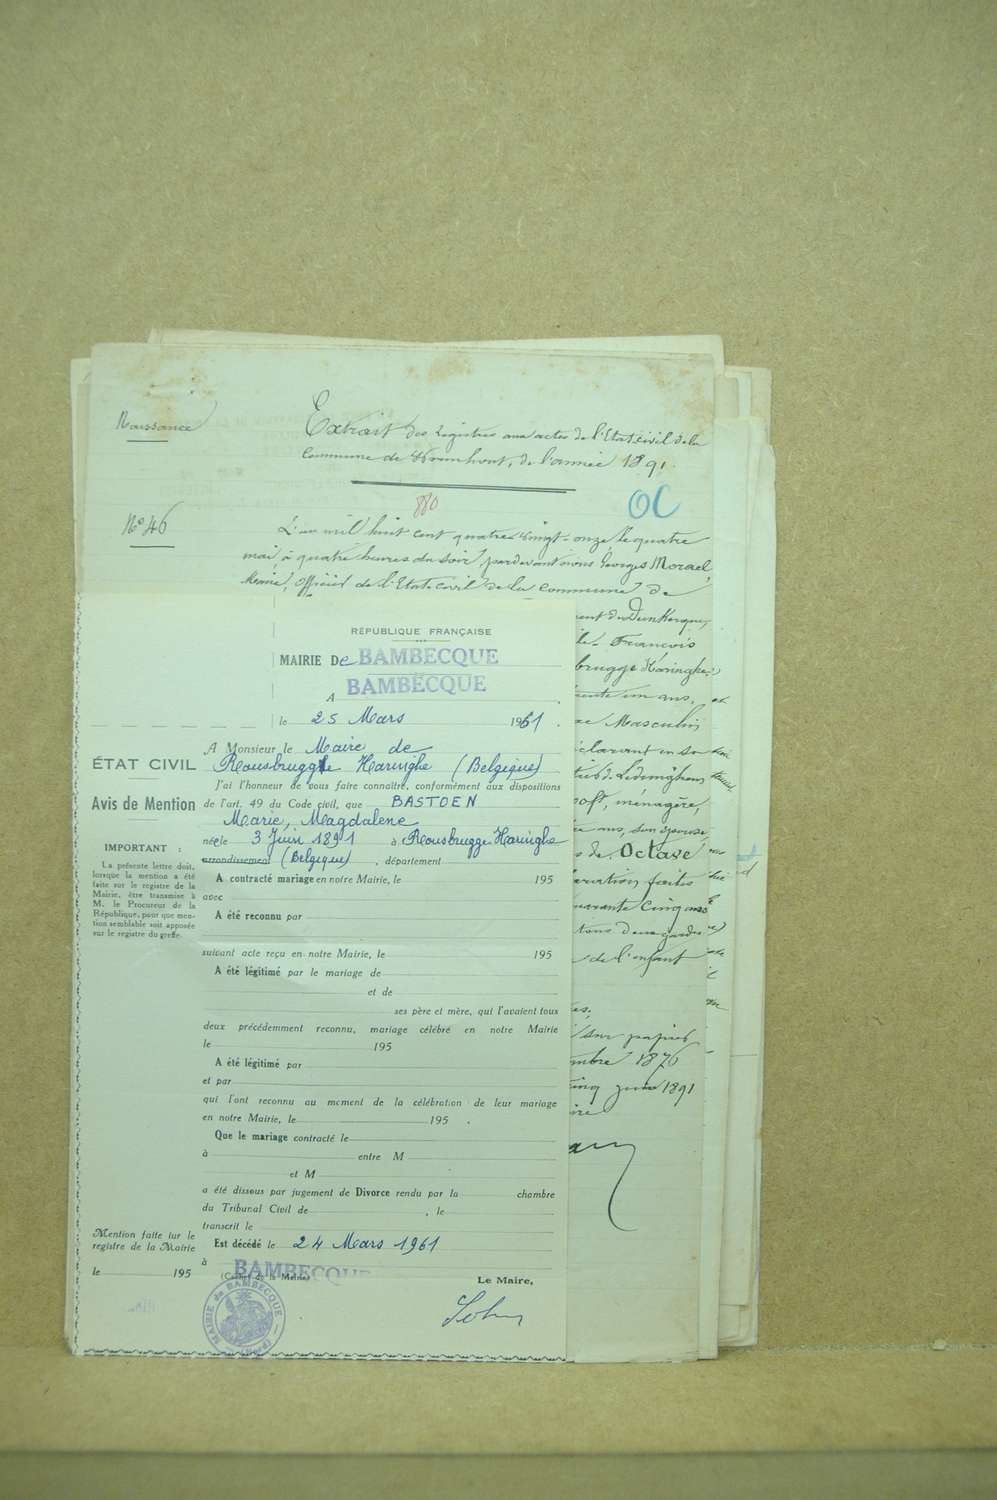 Naissance
Extrait des registres aux actes de l'Etat civil de la
Commune de Wormhout, de l'année 1891.
880
OC
N° 46
L'an mil huit cent quatre-vingt-onze le quatre
mai, à quatre heures du soir, pardevant nous Georges Morael,
Maire, officier de l'Etat civil de la commune de
ment de Dunkerque,
François
brugge Haringhe,
trente un ans,
Masculin
déclarant en
Ledringhem
ménagère,
ans, son épouse
de Octave
aration faites
quarante cinq ans
de l'enfant
sur papier
embre 1876
cinq juin 1891
RÉPUBLIQUE FRANÇAISE
MAIRIE De BAMBECQUE
A BAMBECQUE
le 25 Mars 1961.
A Monsieur le Maire de
Rousbrugge Haringhe (Belgique)
J'ai l'honneur de vous faire connaître, conformément aux dispositions
de l'art. 49 du Code civil, que BASTOEN
Marie, Magdalene
né(e)le 3 Juin 1891 à Rousbrugge Haringhe
arrondissement (Belgique), département
A contracté mariage en notre Mairie, le 195
avec
A été reconnu par
suivant acte reçu en notre Mairie, le 195
A été légitimé par le mariage de
et de
ses père et mère, qui l'avaient tous
deux précédemment reconnu, mariage célébré en notre Mairie
le 195
A été légitimé par
et par
qui l'ont reconnu au moment de la célébration de leur mariage
en notre Mairie, le 195 .
Que le mariage contracté le
à entre M
et M
a été dissous par jugement de Divorce rendu par la chambre
du Tribunal Civil de , le
transcrit le
Est décédé le 24 Mars 1961
à BAMBECQUE
(Cachet de la Mairie)
Le Maire,
MAIRIE de BAMBECQUE
ÉTAT CIVIL
Avis de Mention
IMPORTANT :
La présente lettre doit,
lorsque la mention a été
faite sur le registre de la
Mairie, être transmise à
M. le Procureur de la
République, pour que men-
tion semblable soit apposée
sur le registre du greffe.
Mention faite sur le
registre de la Mairie
le 195